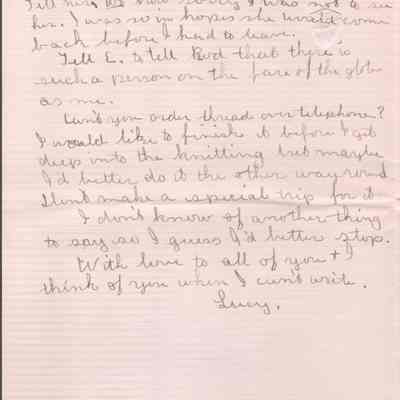 Tell Mrs. how sorry I was not to see
her. I was so in hopes she would come
back before I had to leave.
Tell E. to tell Bud that there is
such a person on the face of the globe
as me.
Can't you order thread over telephone?
I would like to finish it before I get
deep into the knitting but maybe
I'd better do it the other way round
Don't make a special trip for it
I don't know of another thing
to say so I guess I'd better stop.
With love to all of you + I
think of you when I can't write.
Lucy.